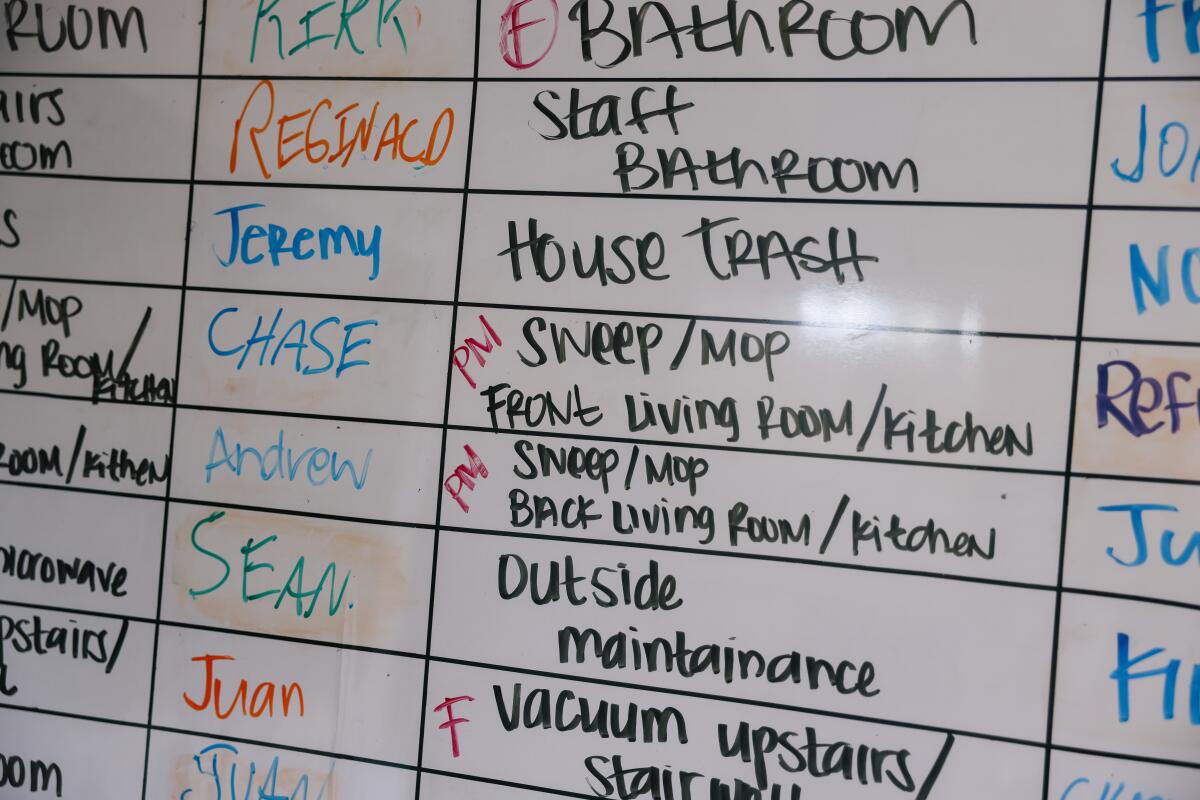 ROOM
KIRK
F BATHROOM
REGINALD
Staff
BATHROOM
Jeremy
HOUSE TRASH
/MOP
ROOM/
KITCHEN
CHASE
PM SWEEP/MOP
FRONT Living ROOM/Kitchen
ROOM/Kithen
Andrew
PM SWEEP/MOP
BACK Living ROOM/Kitchen
microwave
SEAN.
Outside
maintainance
upstairs/
Juan
F Vacuum upstairs/
JUAN